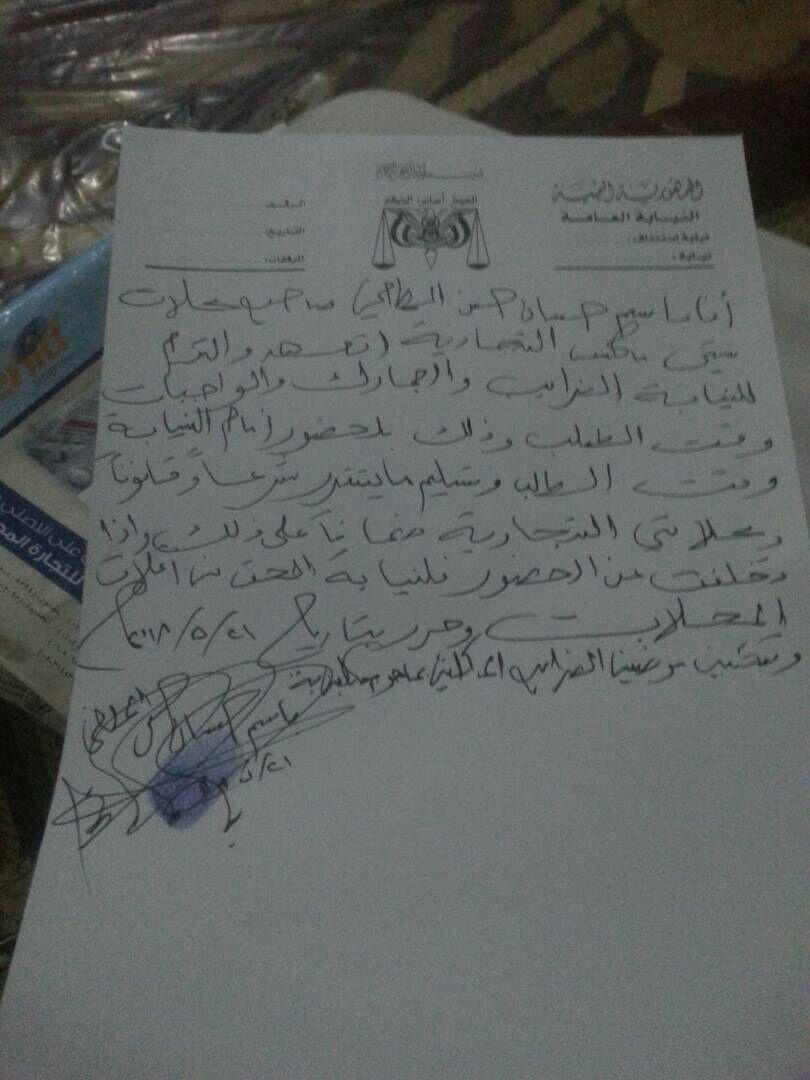 بسم الله الرحمن الرحيم
الجمهورية اليمنية
النيابة العامة
نيابة إستئناف :
نيابة :
العدل أساس الحكم
الرقم:
التاريخ:
المرفقات:
أنا باسم حسان حسن صاحب محلات
سيتي مكس التجارية اتعهد والتزم
للنيابة الضرايب والجمارك والواجبات
وقت الطلب وذلك بلحضور أمام النيابة
وقت الطلب وتسليم مايتقرر شرعاً وقانوناً
ومحلاتي التجارية ضماناً على ذلك وإذا
تخلفت عن الحضور فلنيابة الحق من اغلاق
المحلات وحرر بتاريخ ٢٠١٨/٥/٢١م
الضرايب
باسم حسان حسن
٥/٢١
على الاصلي
للتجارة